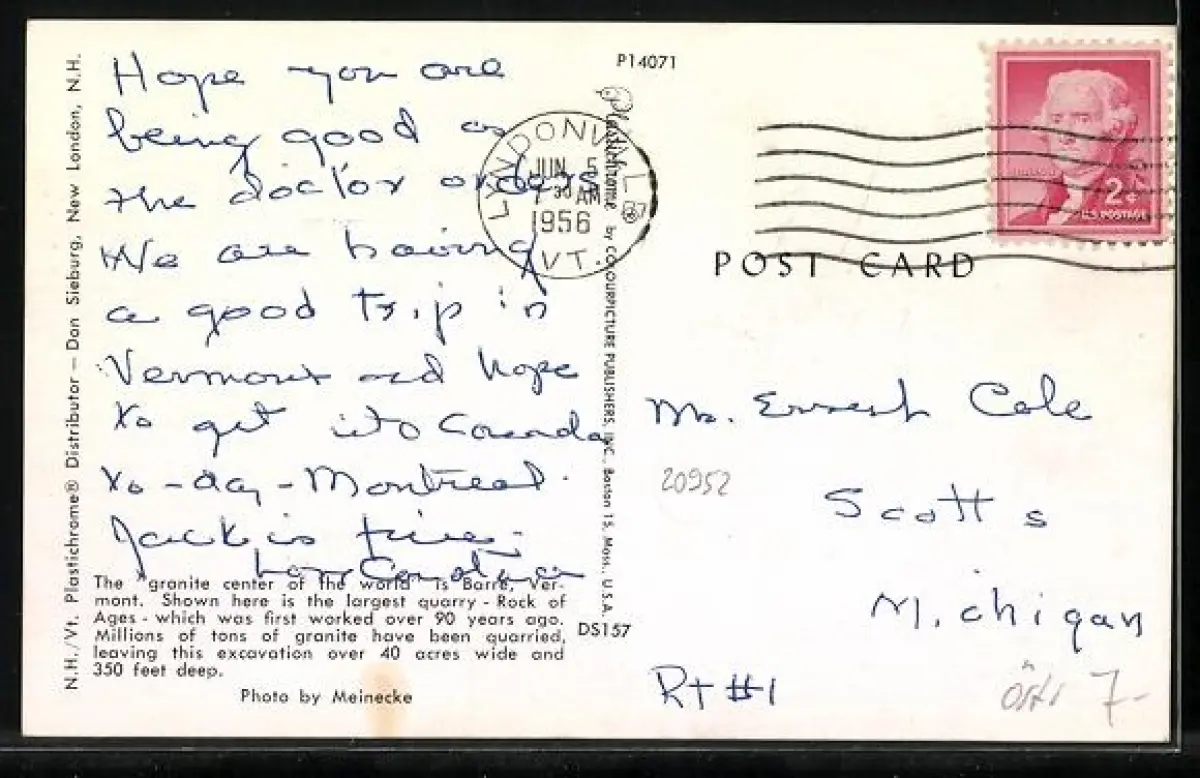 Hope you are
being good as
the doctor orders
We are having
a good trip in
Vermont and hope
to get into Canada
to-day - Montreal.
Jack is fine.
Love
The "granite center of the world" is Barre, Ver-
mont. Shown here is the largest quarry - Rock of
Ages - which was first worked over 90 years ago.
Millions of tons of granite have been quarried,
leaving this excavation over 40 acres wide and
350 feet deep.
Photo by Meinecke
N.H./Vt. Plastichrome® Distributor — Don Sieburg, New London, N.H.
P14071
Plastichrome ® by COLOURPICTURE PUBLISHERS, INC., Boston 15, Mass., U.S.A.
DS157
JUN 5
30 AM
1956
VT.
2¢
U.S. POSTAGE
POST CARD
Mr. Ernest Cole
20952
Scotts
Michigan
Rt #1
7-